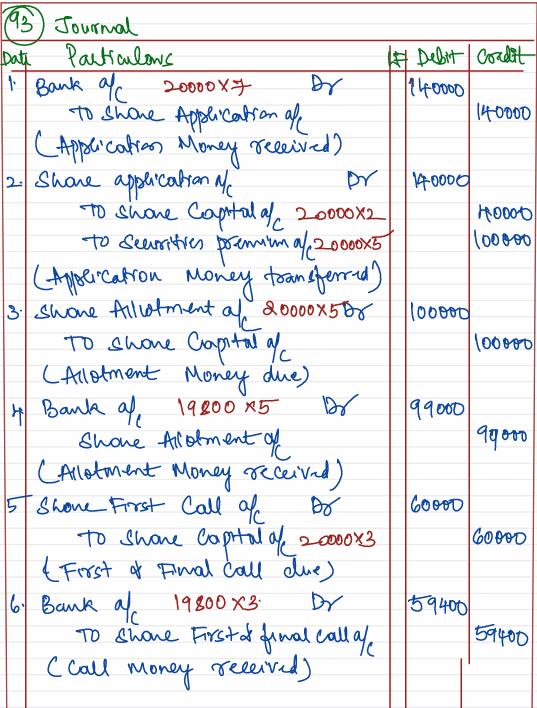 93 Journal
Date Particulars LF Debit Credit
1. Bank a/c 20000×7 Dr 140000
To Share Application a/c 140000
(Application Money received)
2. Share application a/c Dr 140000
To Share Capital a/c 20000×2 40000
To Securities premium a/c 20000×5 100000
(Application Money transferred)
3. Share Allotment a/c 20000×5 Dr 100000
To Share Capital a/c 100000
(Allotment Money due)
4 Bank a/c 19800×5 Dr 99000
Share Allotment a/c 99000
(Allotment Money received)
5 Share First Call a/c Dr 60000
To Share Capital a/c 20000×3 60000
(First & Final Call due)
6. Bank a/c 19800×3. Dr 59400
To Share First & final call a/c 59400
(Call money received)